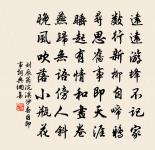 遠遠游蜂不記家
數行新柳自啼鴉
尋思舊事即天涯
睡起有情和畫卷
燕歸無語傍人斜
晚風吹落小瓶花
劉辰翁浣溪沙春日即